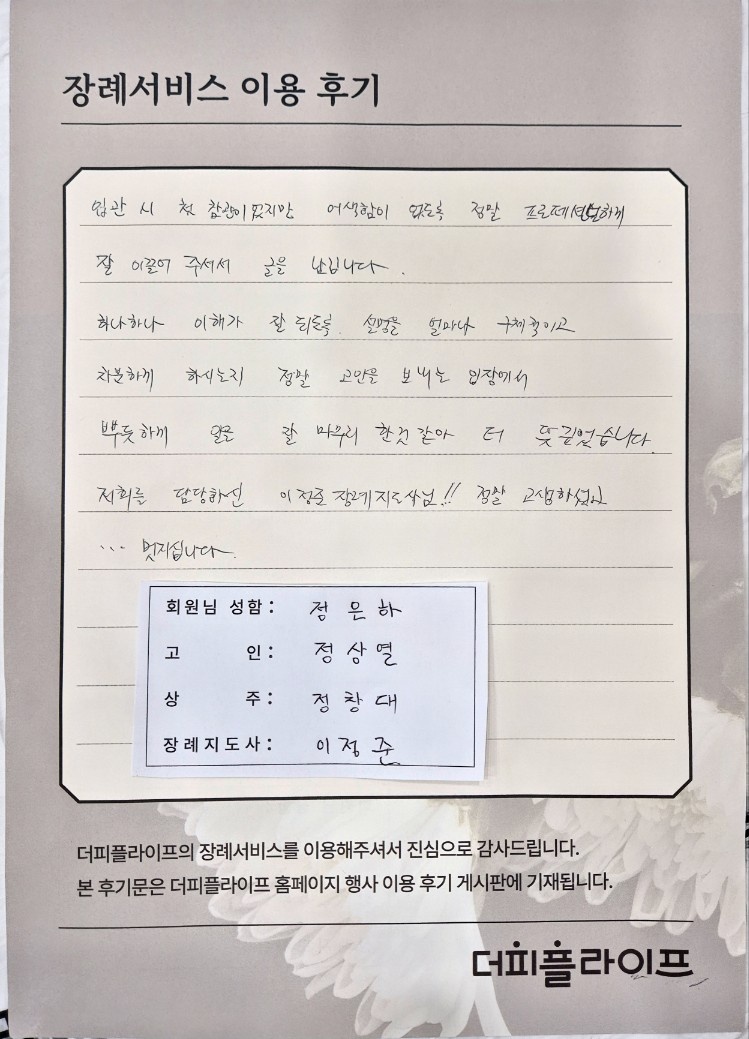 장례서비스 이용 후기
입관 시 첫 참관이었지만 어색함이 없도록 정말 프로페셔널하게
잘 이끌어 주셔서 글을 남깁니다.
하나하나 이해가 잘 되도록 설명을 얼마나 구체적이고
차분하게 하시는지 정말 고인을 보내는 입장에서
뿌듯하게 잘 마무리 한것 같아 더 뜻 깊었습니다.
저희를 담당하신 이정준 장례지도사님!! 정말 고생하셨고
... 멋지십니다.
회원님 성함 : 정은하
고 인 : 정상열
상 주 : 정창대
장례지도사 : 이정준
더피플라이프의 장례서비스를 이용해주셔서 진심으로 감사드립니다.
본 후기문은 더피플라이프 홈페이지 행사 이용 후기 게시판에 기재됩니다.
더피플라이프